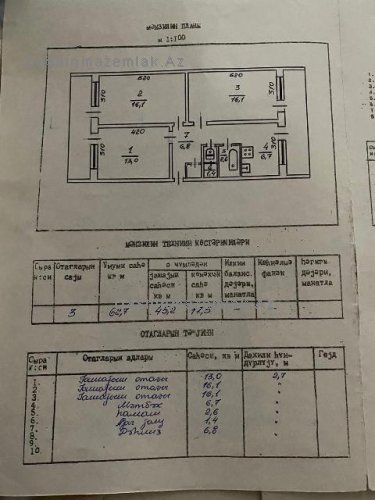 МӘНЗИЛИН ПЛАНЫ
М 1:100
620
620
310
2
16,1
3
16,1
310
420
7
6,8
310
1
13,0
1,4
2,6
4
6,7
310
МӘНЗИЛИН ТЕХНИКИ КӨСТӘРИҸИЛӘРИ
Сыра н:си
Отагларын сајы
Үмуми саһә кв м
о ҹүмләдән
јашајыш саһәси кв м
көмәкчи саһәси кв м
Илкин баланс. дәјәри, манатла
Көһнәлмә фаизи
Һәгиги дәјәри, манатла
3 62,7 45,2 17,5
ОТАГЛАРЫН ТӘ'ЈИНИ
Сыра н:си
Отагларын адлары
Саһәси, кв м
Дахили һүн-дүрлүјү, м
Гејд
1. Јашајыш отағы 13,0 2,7
2. Јашајыш отағы 16,1 "
3. Јашајыш отағы 16,1 "
4. Мәтбәх 6,7 "
5. Һамам 2,6 "
6. 1,4 "
7. Дәһлиз 6,8 "
8.
9.
10